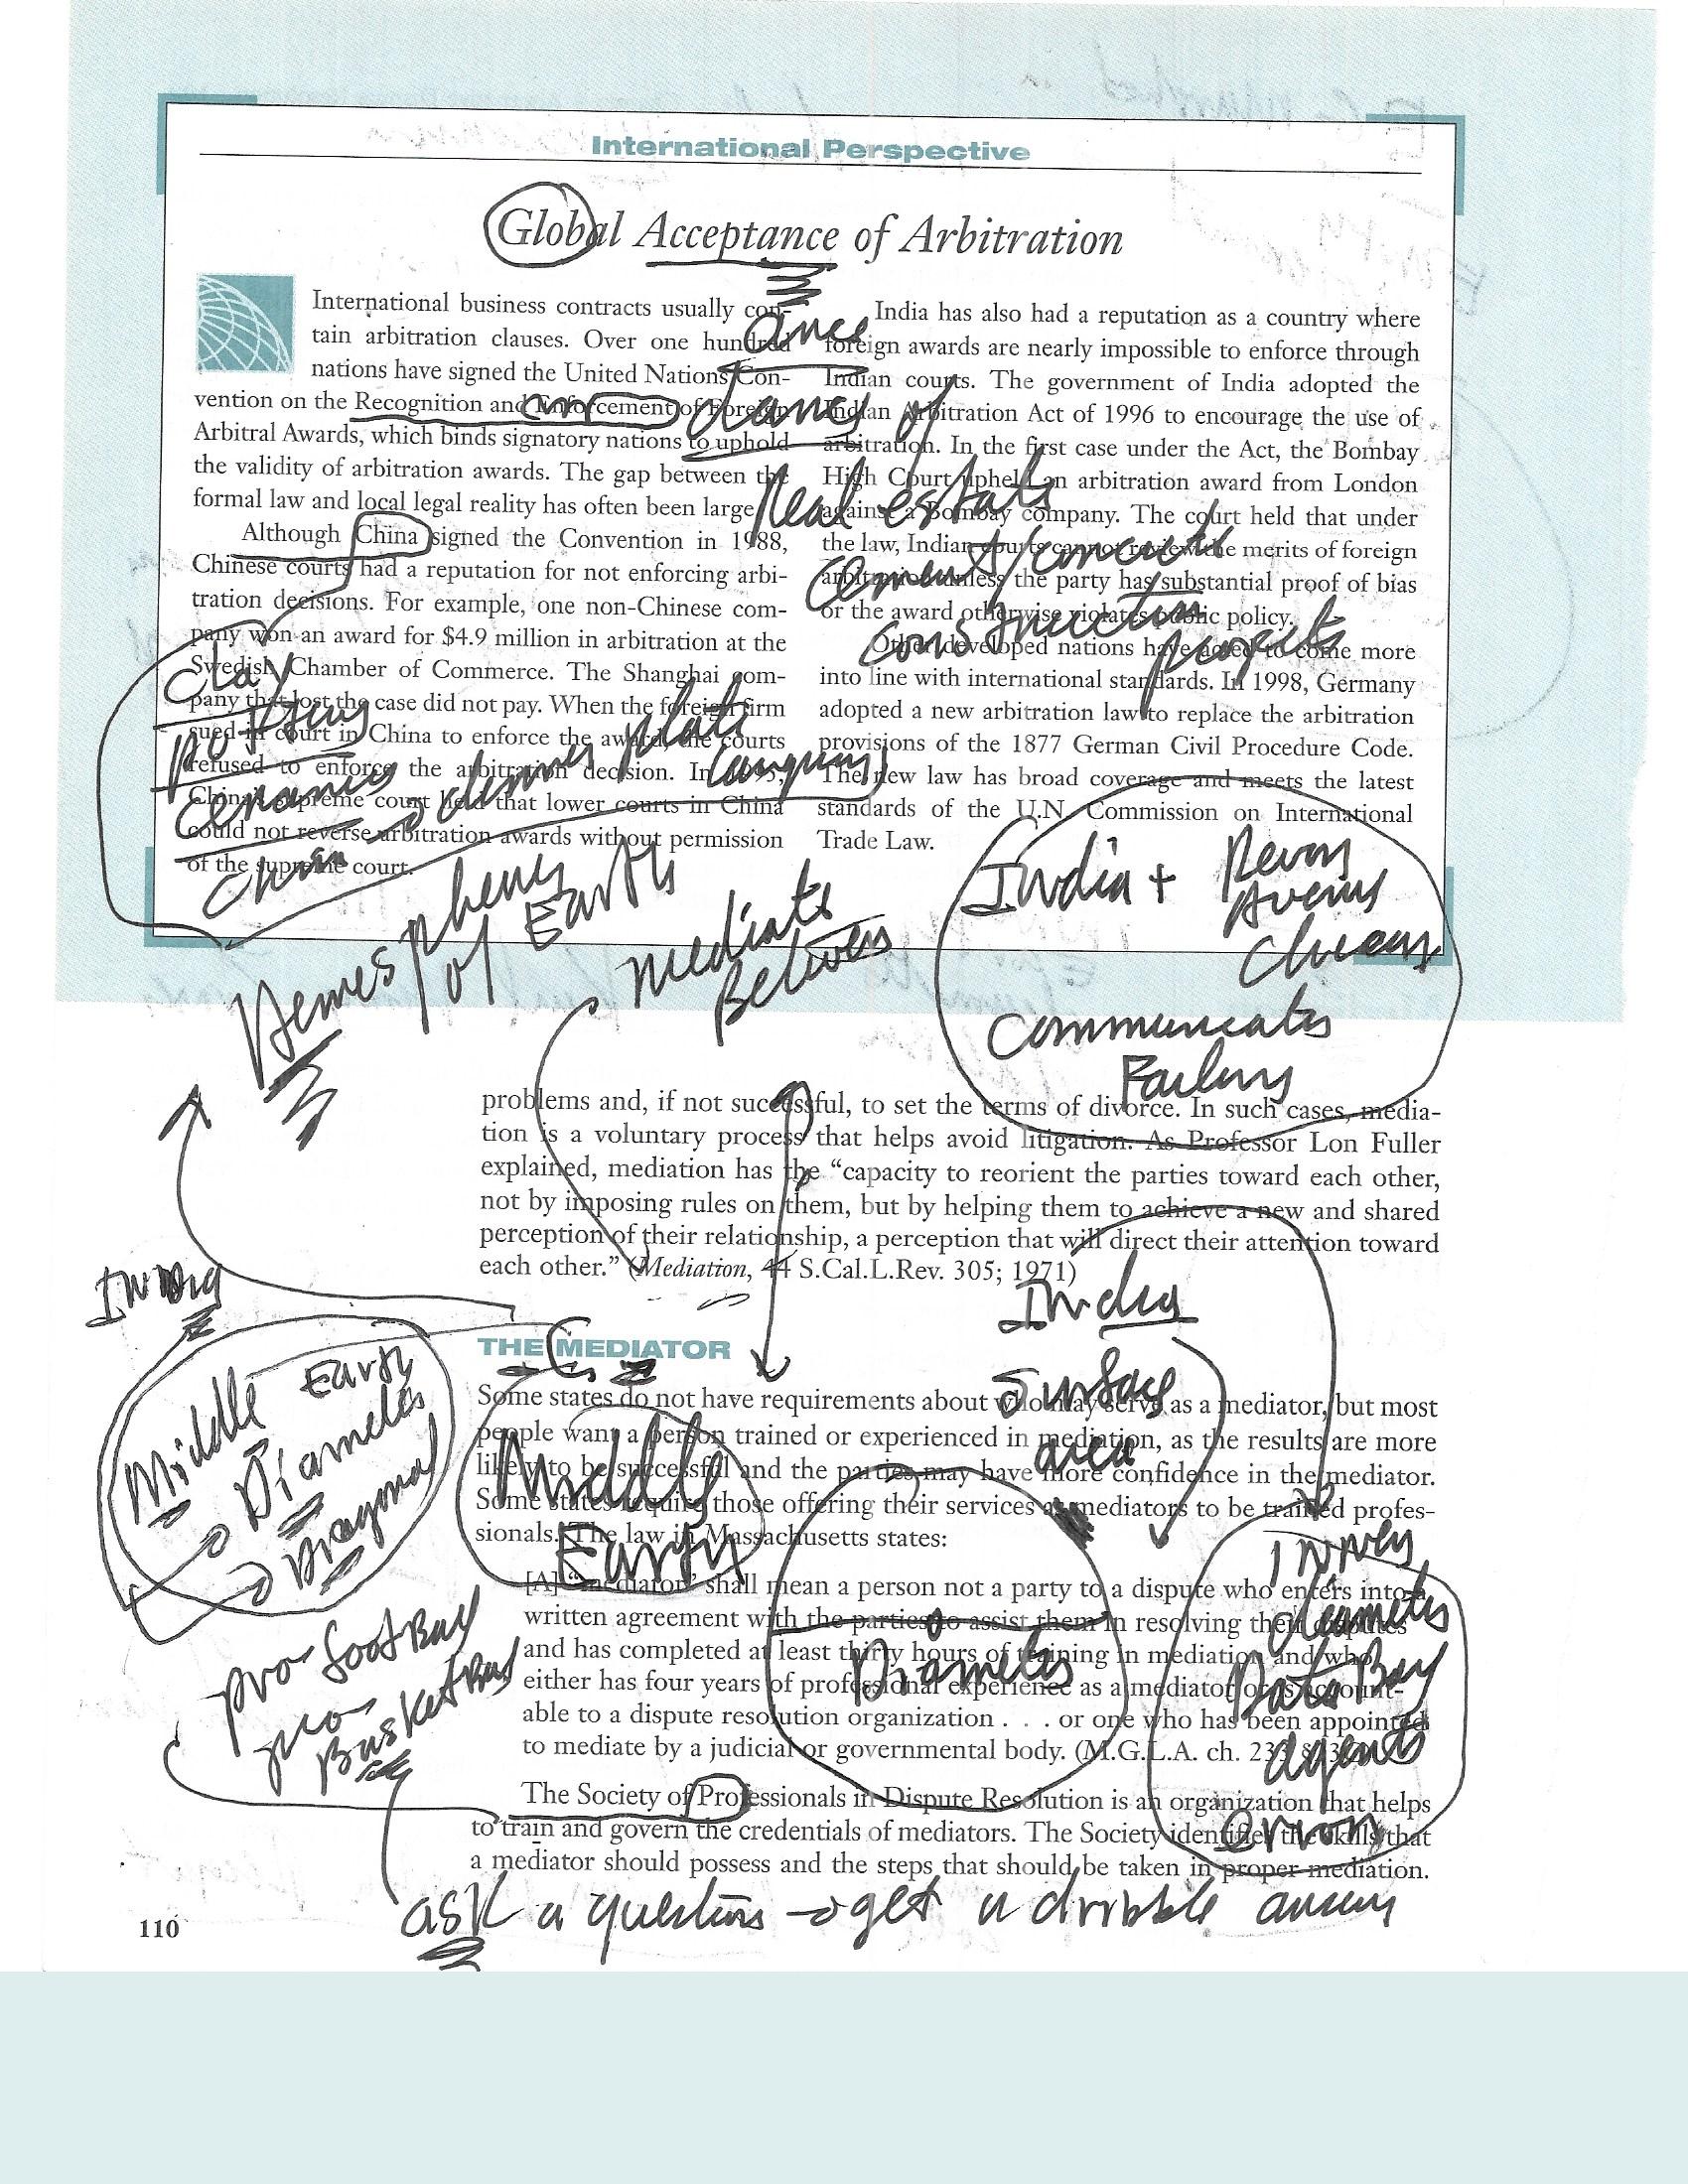 International Perspective
Global Acceptance of Arbitration
International business contracts usually con-
tain arbitration clauses. Over one hundred
nations have signed the United Nations Con-
vention on the Recognition and Enforcement of Foreign
Arbitral Awards, which binds signatory nations to uphold
the validity of arbitration awards. The gap between the
formal law and local legal reality has often been large.
Although China signed the Convention in 1988,
Chinese courts had a reputation for not enforcing arbi-
tration decisions. For example, one non-Chinese com-
pany won an award for $4.9 million in arbitration at the
Swedish Chamber of Commerce. The Shanghai com-
pany that lost the case did not pay. When the foreign firm
sued in court in China to enforce the award, the courts
refused to enforce the arbitration decision. In 1995,
China's supreme court held that lower courts in China
could not reverse arbitration awards without permission
of the supreme court.
India has also had a reputation as a country where
foreign awards are nearly impossible to enforce through
Indian courts. The government of India adopted the
Indian Arbitration Act of 1996 to encourage the use of
arbitration. In the first case under the Act, the Bombay
High Court upheld an arbitration award from London
against a Bombay company. The court held that under
the law, Indian courts cannot review the merits of foreign
arbitration unless the party has substantial proof of bias
or the award otherwise violates public policy.
Other developed nations have agreed to come more
into line with international standards. In 1998, Germany
adopted a new arbitration law to replace the arbitration
provisions of the 1877 German Civil Procedure Code.
The new law has broad coverage and meets the latest
standards of the U.N. Commission on International
Trade Law.
ance
dance of
Real estate
cement/concrete
construction
projects
clay
pottery
ceramics → dinner plate
China
Hemisphere
of Earth
mediate
Between
India +
Communicates
Failure
problems and, if not successful, to set the terms of divorce. In such cases, media-
tion is a voluntary process that helps avoid litigation. As Professor Lon Fuller
explained, mediation has the “capacity to reorient the parties toward each other,
not by imposing rules on them, but by helping them to achieve a new and shared
perception of their relationship, a perception that will direct their attention toward
each other.” (Mediation, 44 S.Cal.L.Rev. 305; 1971)
India
THE MEDIATOR
Some states do not have requirements about who may serve as a mediator, but most
people want a person trained or experienced in mediation, as the results are more
likely to be successful and the parties may have more confidence in the mediator.
Some states require those offering their services as mediators to be trained profes-
sionals. The law in Massachusetts states:
[A] “mediator” shall mean a person not a party to a dispute who enters into a
written agreement with the parties to assist them in resolving their disputes
and has completed at least thirty hours of training in mediation and who
either has four years of professional experience as a mediator or is account-
able to a dispute resolution organization . . . or one who has been appointed
to mediate by a judicial or governmental body. (M.G.L.A. ch. 233
The Society of Professionals in Dispute Resolution is an organization that helps
to train and govern the credentials of mediators. The Society identifies the skills that
a mediator should possess and the steps that should be taken in proper mediation.
India
Surface
area
Middle
Earth
Middle Earth
Diameter
Diagonal
Diameter
Inner
diameter
Data Bay
agents
error
pro-football
pro-
Basketball
ask a question → get a dribble answer
110